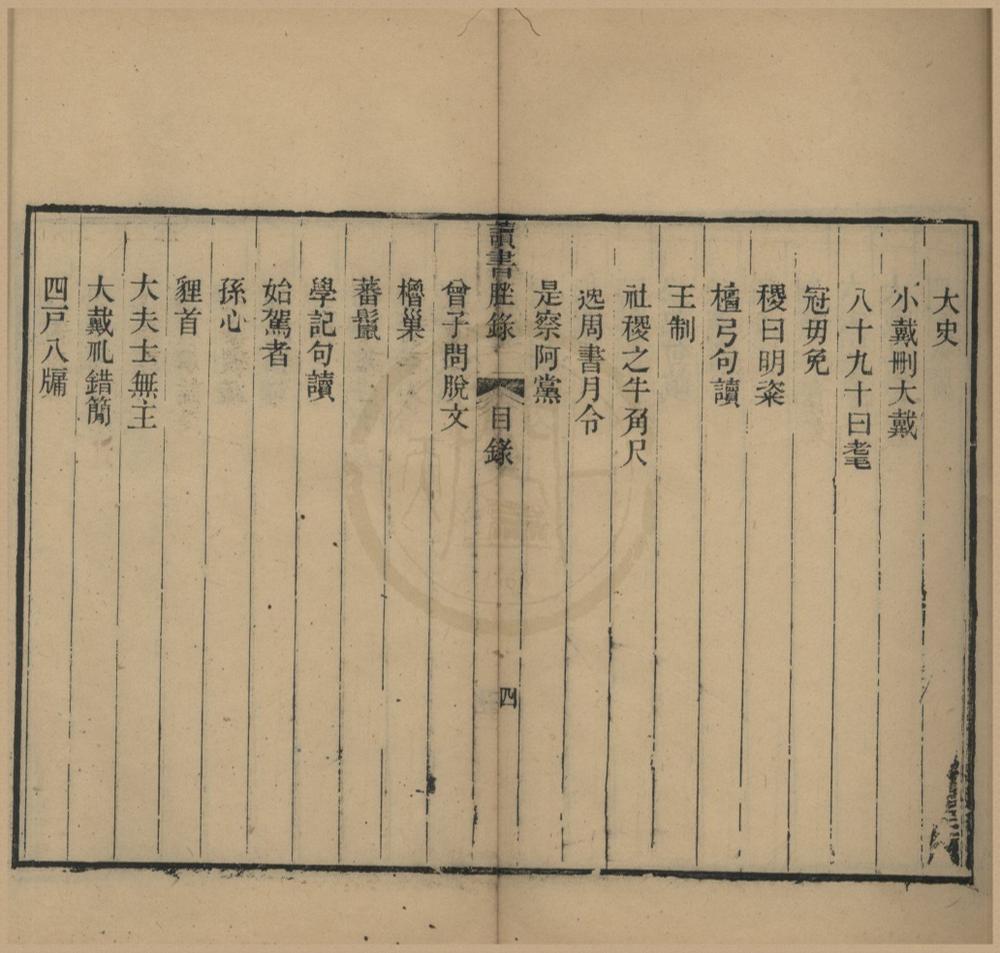 大史
小戴刪大戴
八十九十曰耄
冠毋免
稷曰明粢
檀弓句讀
王制
社稷之牛角尺
逸周書月令
是察阿黨
讀書脞錄
目錄
四
曾子問脫文
櫓巢
蕃鬣
學記句讀
始駕者
孫心
貍首
大夫士無主
大戴礼錯簡
四戸八牖